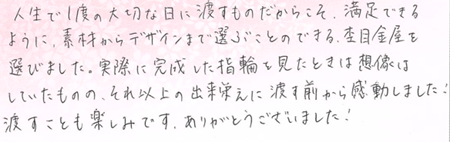 人生で1度の大切な日に渡すものだからこそ、満足できる
ように、素材からデザインまで選ぶことのできる、杢目金屋を
選びました。実際に完成した指輪を見たときは想像は
していたものの、それ以上の出来栄えに渡す前から感動しました!
渡すことも楽しみです、ありがとうございました!